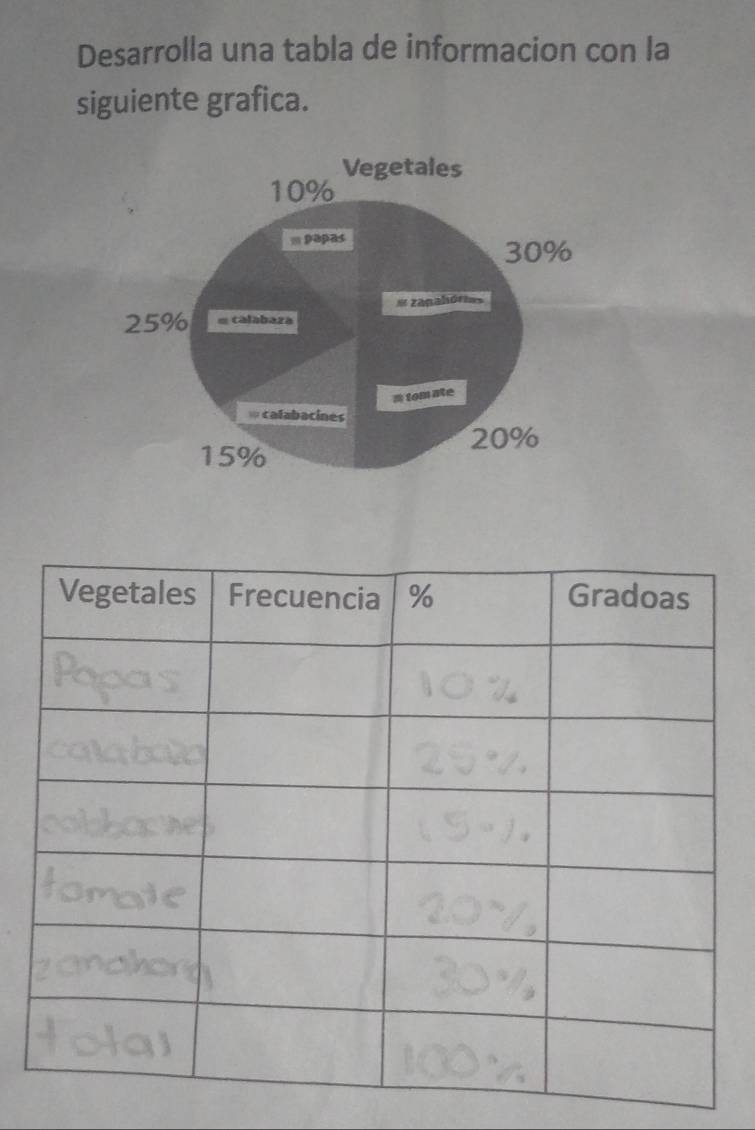 Desarrolla una tabla de informacion con la
siguiente grafica.
Vegetales
10%
papas
30%
zanahorias
25%
calabaza
tomate
calabacines
20%
15%
Vegetales Frecuencia % Gradoas
Papas 10%
calabaza 25%
calabacines 15%
tomate 20%
zanahoria 30%
total 100%